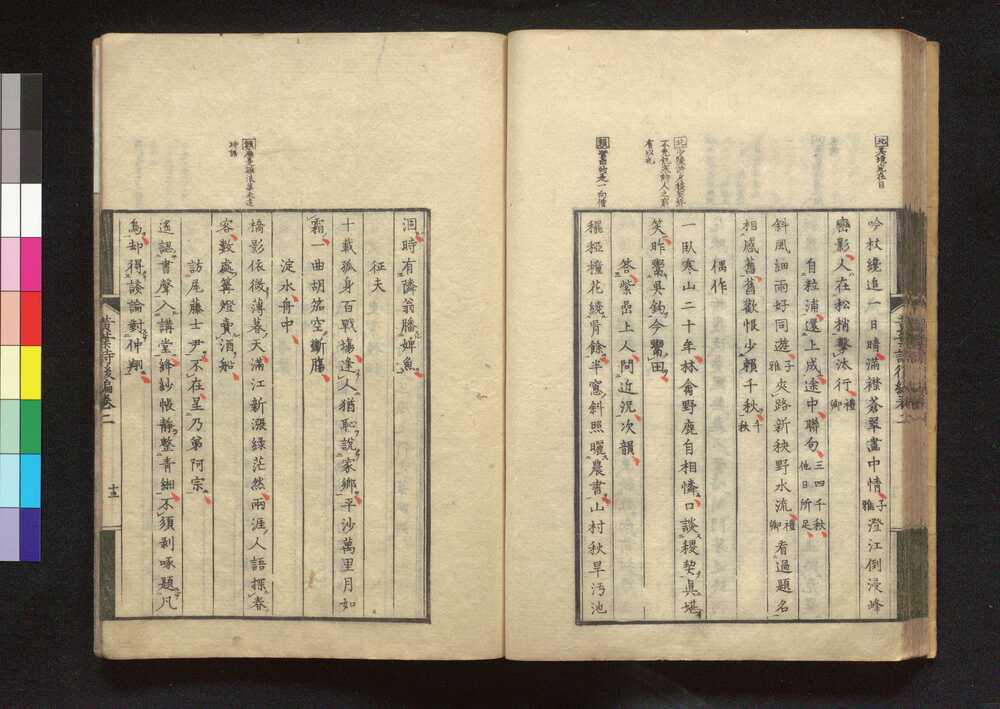 吟杖纔追一日晴滿襟蒼翠畫中情子雅澄江倒浸峰
巒影人在松梢擊汰行禮卿
自粒浦還上成途中聯句三四千秋他日所足
斜風細雨好同遊子雅夾路新秧野水流禮卿看過題名
相感舊舊歡恨少賴千秋千秋
偶作
一臥寒山二十年林禽野鹿自相憐口談稷契真堪
笑昨鬻吳鉤今鬻田
答紫嵒上人問近況次韻
穲稏橦花繞骨餘半窓斜照曬農書山村秋旱汚池
涸時有隣翁膳婢魚
征夫
十載孤身百戰場逢人猶恥說家鄉平沙萬里月如
霜一曲胡笳空斷腸
淀水舟中
橋影依微薄暮天滿江新漲綠茫然兩涯人語探春
客數處篝燈賣酒船
訪尾藤士尹不在呈乃弟阿宗
遙認書聲入講堂絳紗帳靜整青緗不須剝啄題凡
鳥却得談論對仲翔
黃葉詩後編卷二
十三